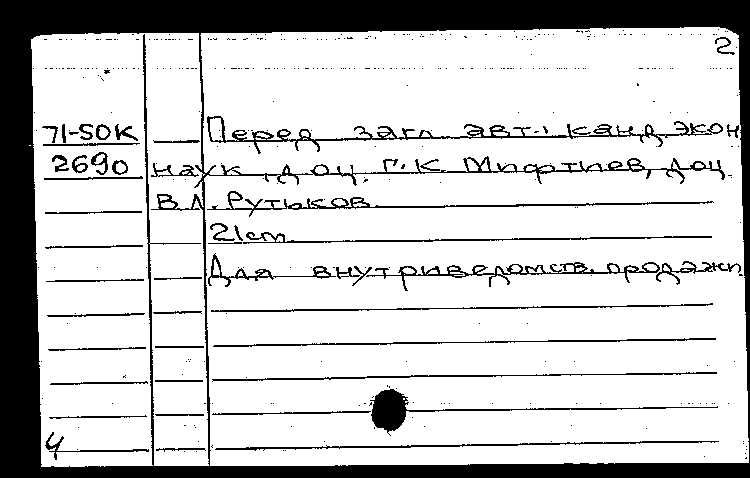 2
71-SOK Перед загл авт.: канд экон
2690 наук, доц. Г.К. Мифтиев, доц
В.Л. Рутьков
21cm
Для внутриведомств. продажи
4